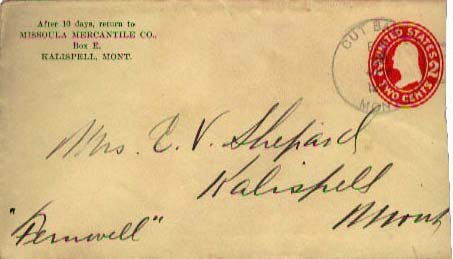 After 10 days, return to
MISSOULA MERCANTILE CO.,
Box E,
KALISPELL, MONT.
CUT BA
MONT
UNITED STATES
2 2
TWO CENTS
Mrs. C. V. Shepard
Kalispell
Mont
"Fernwell"